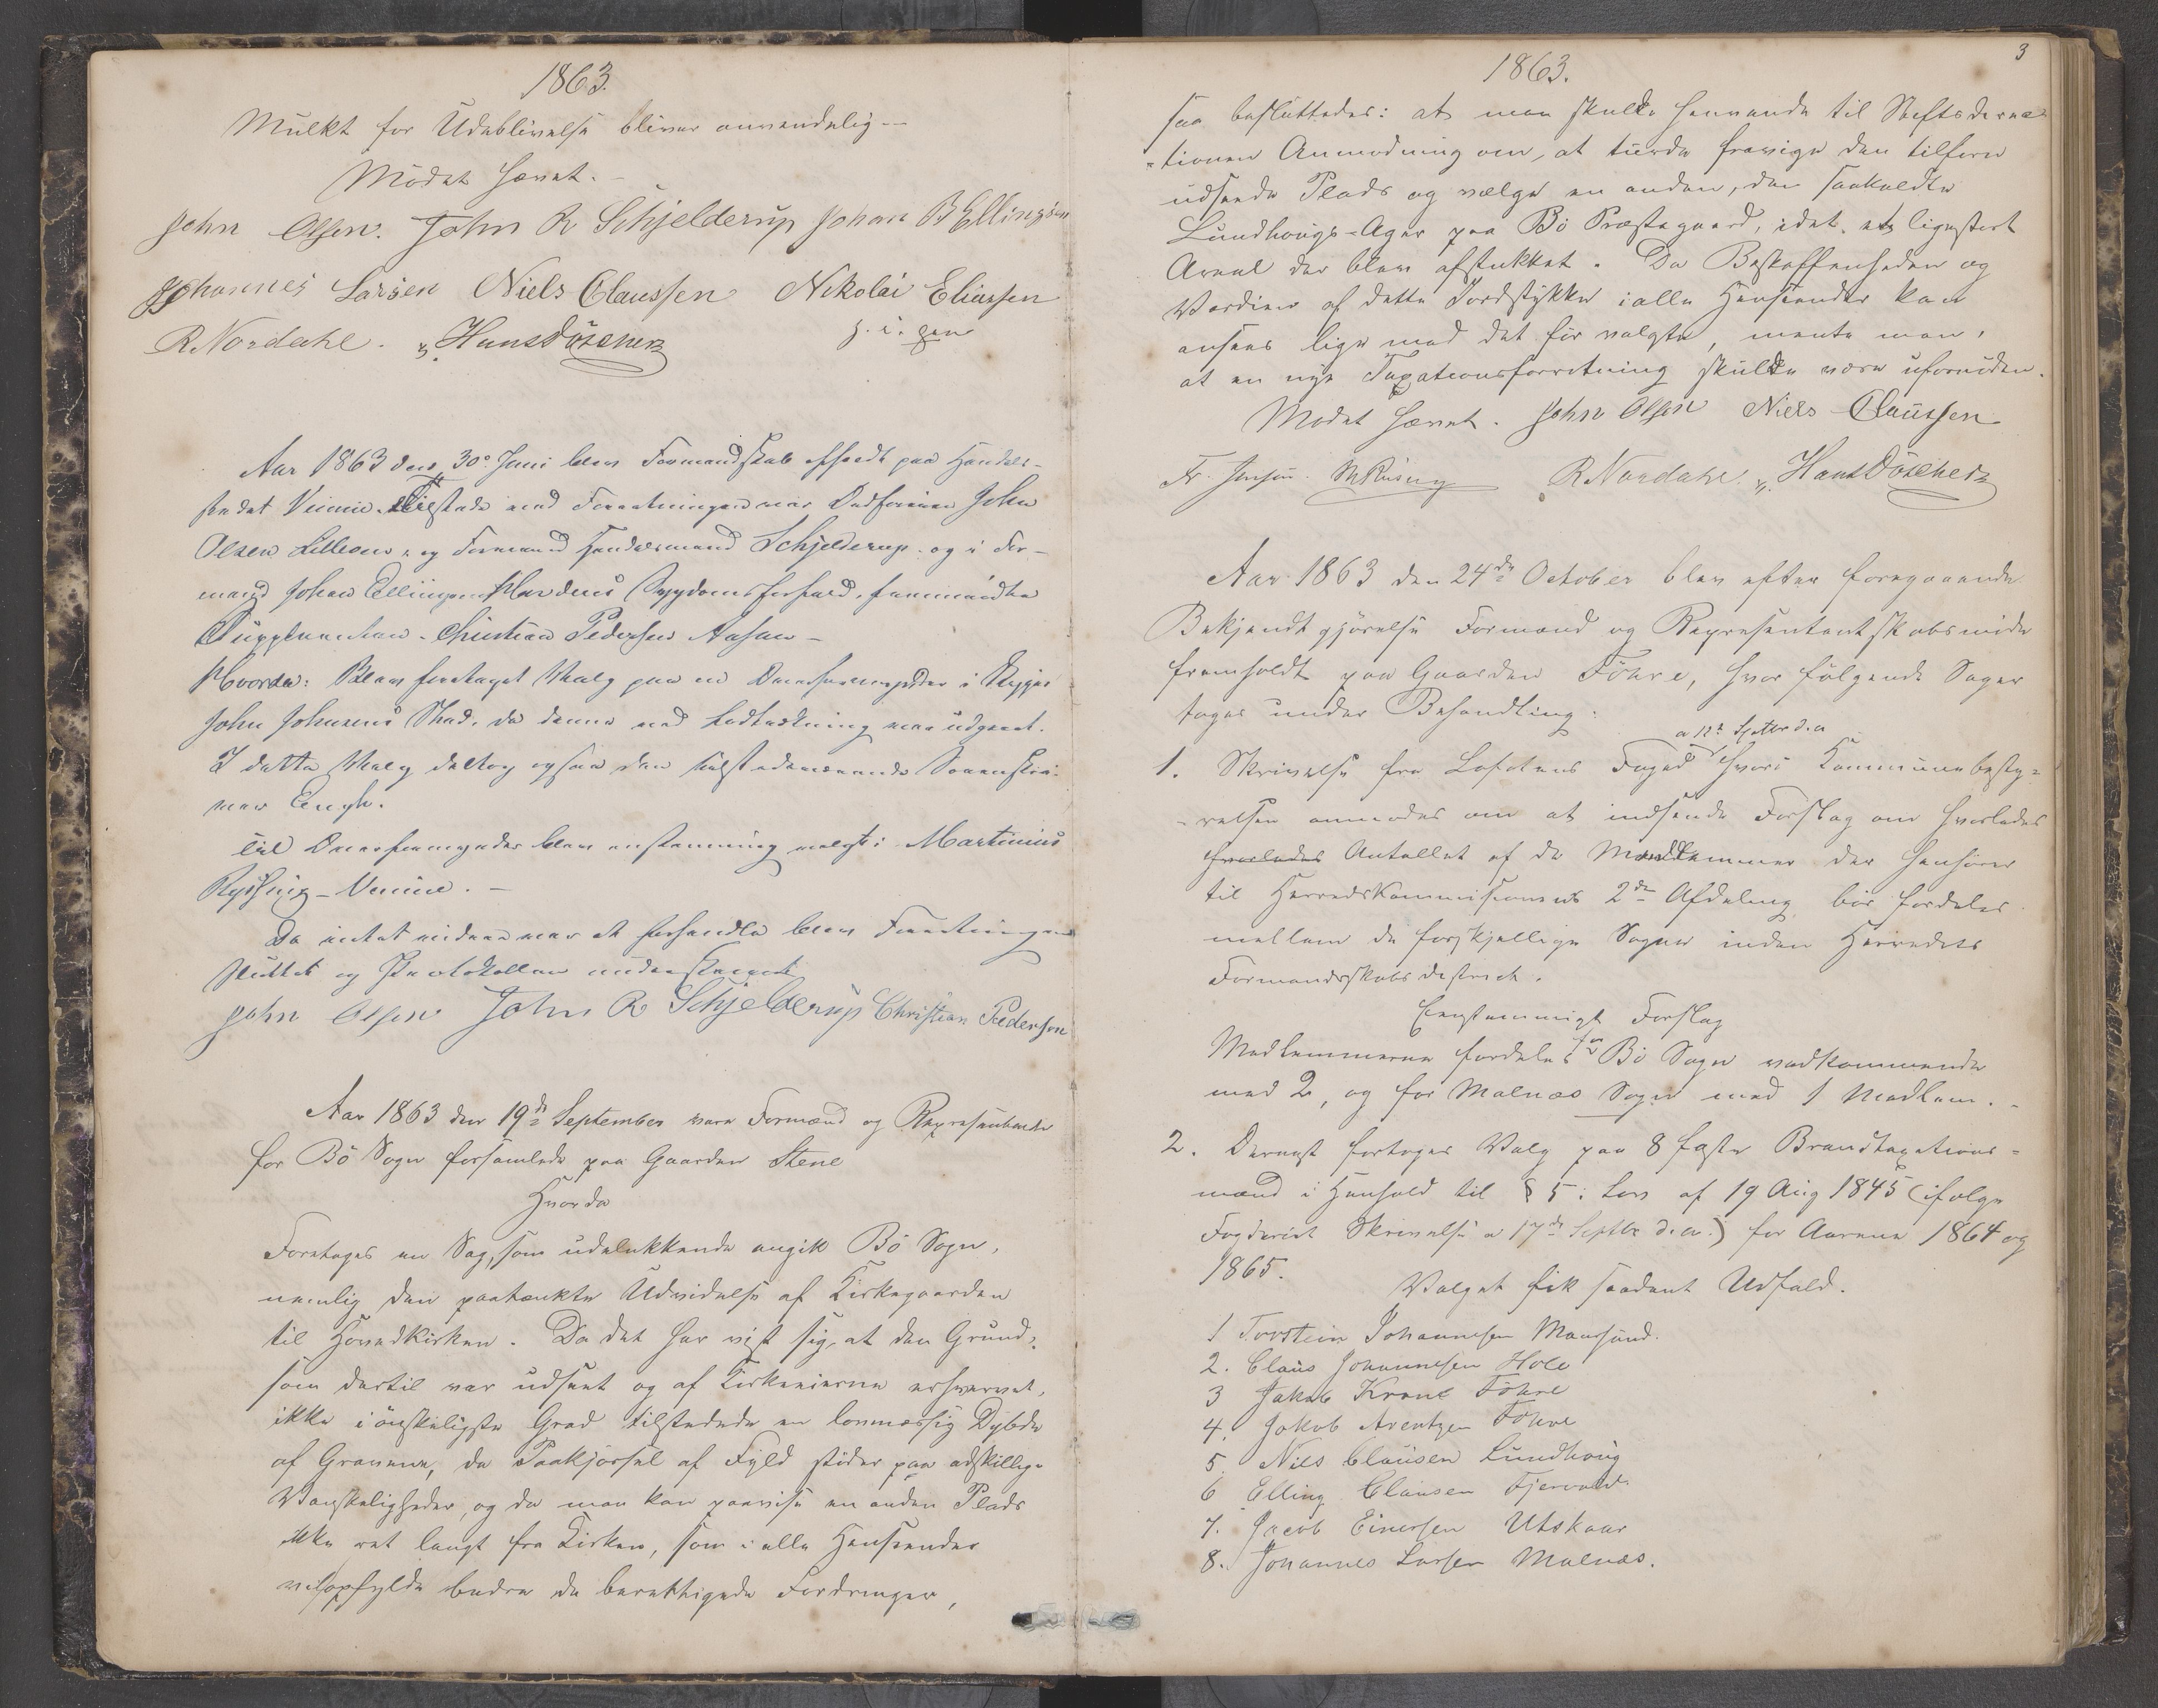 1863.
Mulkt for Udeblivelse bliver anvendelig -
Mødet hævet. -
John Olsen. John R Schjelderup Johan B Ellingsen
Johannes Larsen Niels Claussen Nikolai Eliassen
R. Nordahl. Hans Döscher
Aar 1863 den 30te Juni blev Formandskab afholdt paa Handels-
stedet Vinie. Tilstede ved Forretningen var Ordføreren John
Olsen og Formand Handelsmand Schjelderup og i For-
mand Johan Ellingsen Sygdomsforfald, fremmødte
Suppleanten Christian Pedersen
Hvorda: Blev foretaget Valg paa en Overformynder i
John Johnsens Sted, da denne ved Lodtrækning var udgaaet.
I dette Valg deltog ogsaa den tilstedeværende Sorenskri-
ver Lengh.
Til Overformynder blev enstemmig valgt: Martinus
Rysjing - Vinie. -
Da intet videre var at forhandle blev Forretningen
sluttet og Protokollen underskrevet
John Olsen John R Schjelderup Christian Pedersen
Aar 1863 den 19de September vare Formænd og Repræsentanter
for Bö Sogn forsamlede paa Gaarden Stene
Hvorda
Foretoges en Sag, som udelukkende angik Bö Sogn,
nemlig den paatænkte Udvidelse af Kirkegaarden
til Hovedkirken. Da det har vist sig, at den Grund,
som dertil var udseet og af Kirkeeierne erhvervet,
ikke i ønskeligste Grad tilstedede en lovmæssig Dybde
af Gravene, da Paakjørsel af Fyld støder paa adskillige
Vanskeligheder, og da man kan paavise en anden Plads
ikke ret langt fra Kirken, som i alle Henseender
vil opfylde bedre de berettigede Fordringer,
3
1863.
saa besluttedes: at man skulde henvende til Stiftsdirec-
tionen Anmodning om, at turde fravige den tilforn
udseede Plads og vælge en anden, den saakaldte
Lundhougs-Ager paa Bö Præstegaard, idet et ligestort
Areal der blev afstukket. Da Beskaffenheden og
Værdien af dette Jordstykke i alle Henseender kan
ansees lige med det før valgte, mente man,
at en nye Taxationsforretning skulde være ufornøden.
Mødet hævet. John Olsen Niels Claussen
Fr. Jensen. R Nordahl. Hans Döscher
Aar 1863 den 24de October blev efter foregaaende
Bekjendtgjørelse Formænd og Repræsentantskabsmøde
fremholdt paa Gaarden Föhre, hvor følgende Sager
toges under Behandling:
a 12te Septbr d.a
1. Skrivelse fra Lofotens Foged hvori Kommunebesty-
-relsen anmodes om at indsende Forslag om hvorledes
hvorledes Antallet af de Medlemmer der henhører
til Herredskommissionens 2den Afdeling bør fordeles
mellem de forskjellige Sogne inden Herredets
Formandsskabsdistrict.
Eenstemmigt Forslag
Medlemmerne fordeles for Bö Sogn vedkommende
med 2, og for Malnæs Sogn med 1 Medlem. -
2. Dernæst foretoges Valg paa 8 faste Brandtaxations-
mænd i Henhold til § 5 i Lov af 19 Aug 1845 (ifølge
Fogderiets Skrivelse a 17de Septbr d.a.) for Aarene 1864 og
1865.
Valget fik saadant Udfald.
1 Torstein Johannesen Maarsund.
2. Claus Johannesen Hole
3 Jakob Krane Föhre
4. Jakob Arentzen Föhre
5. Niels Clausen Lundhoug
6 Elling Clausen Fjærvold.
7. Jacob Einersen Utskaar
8. Johannes Larsen Malnæs.